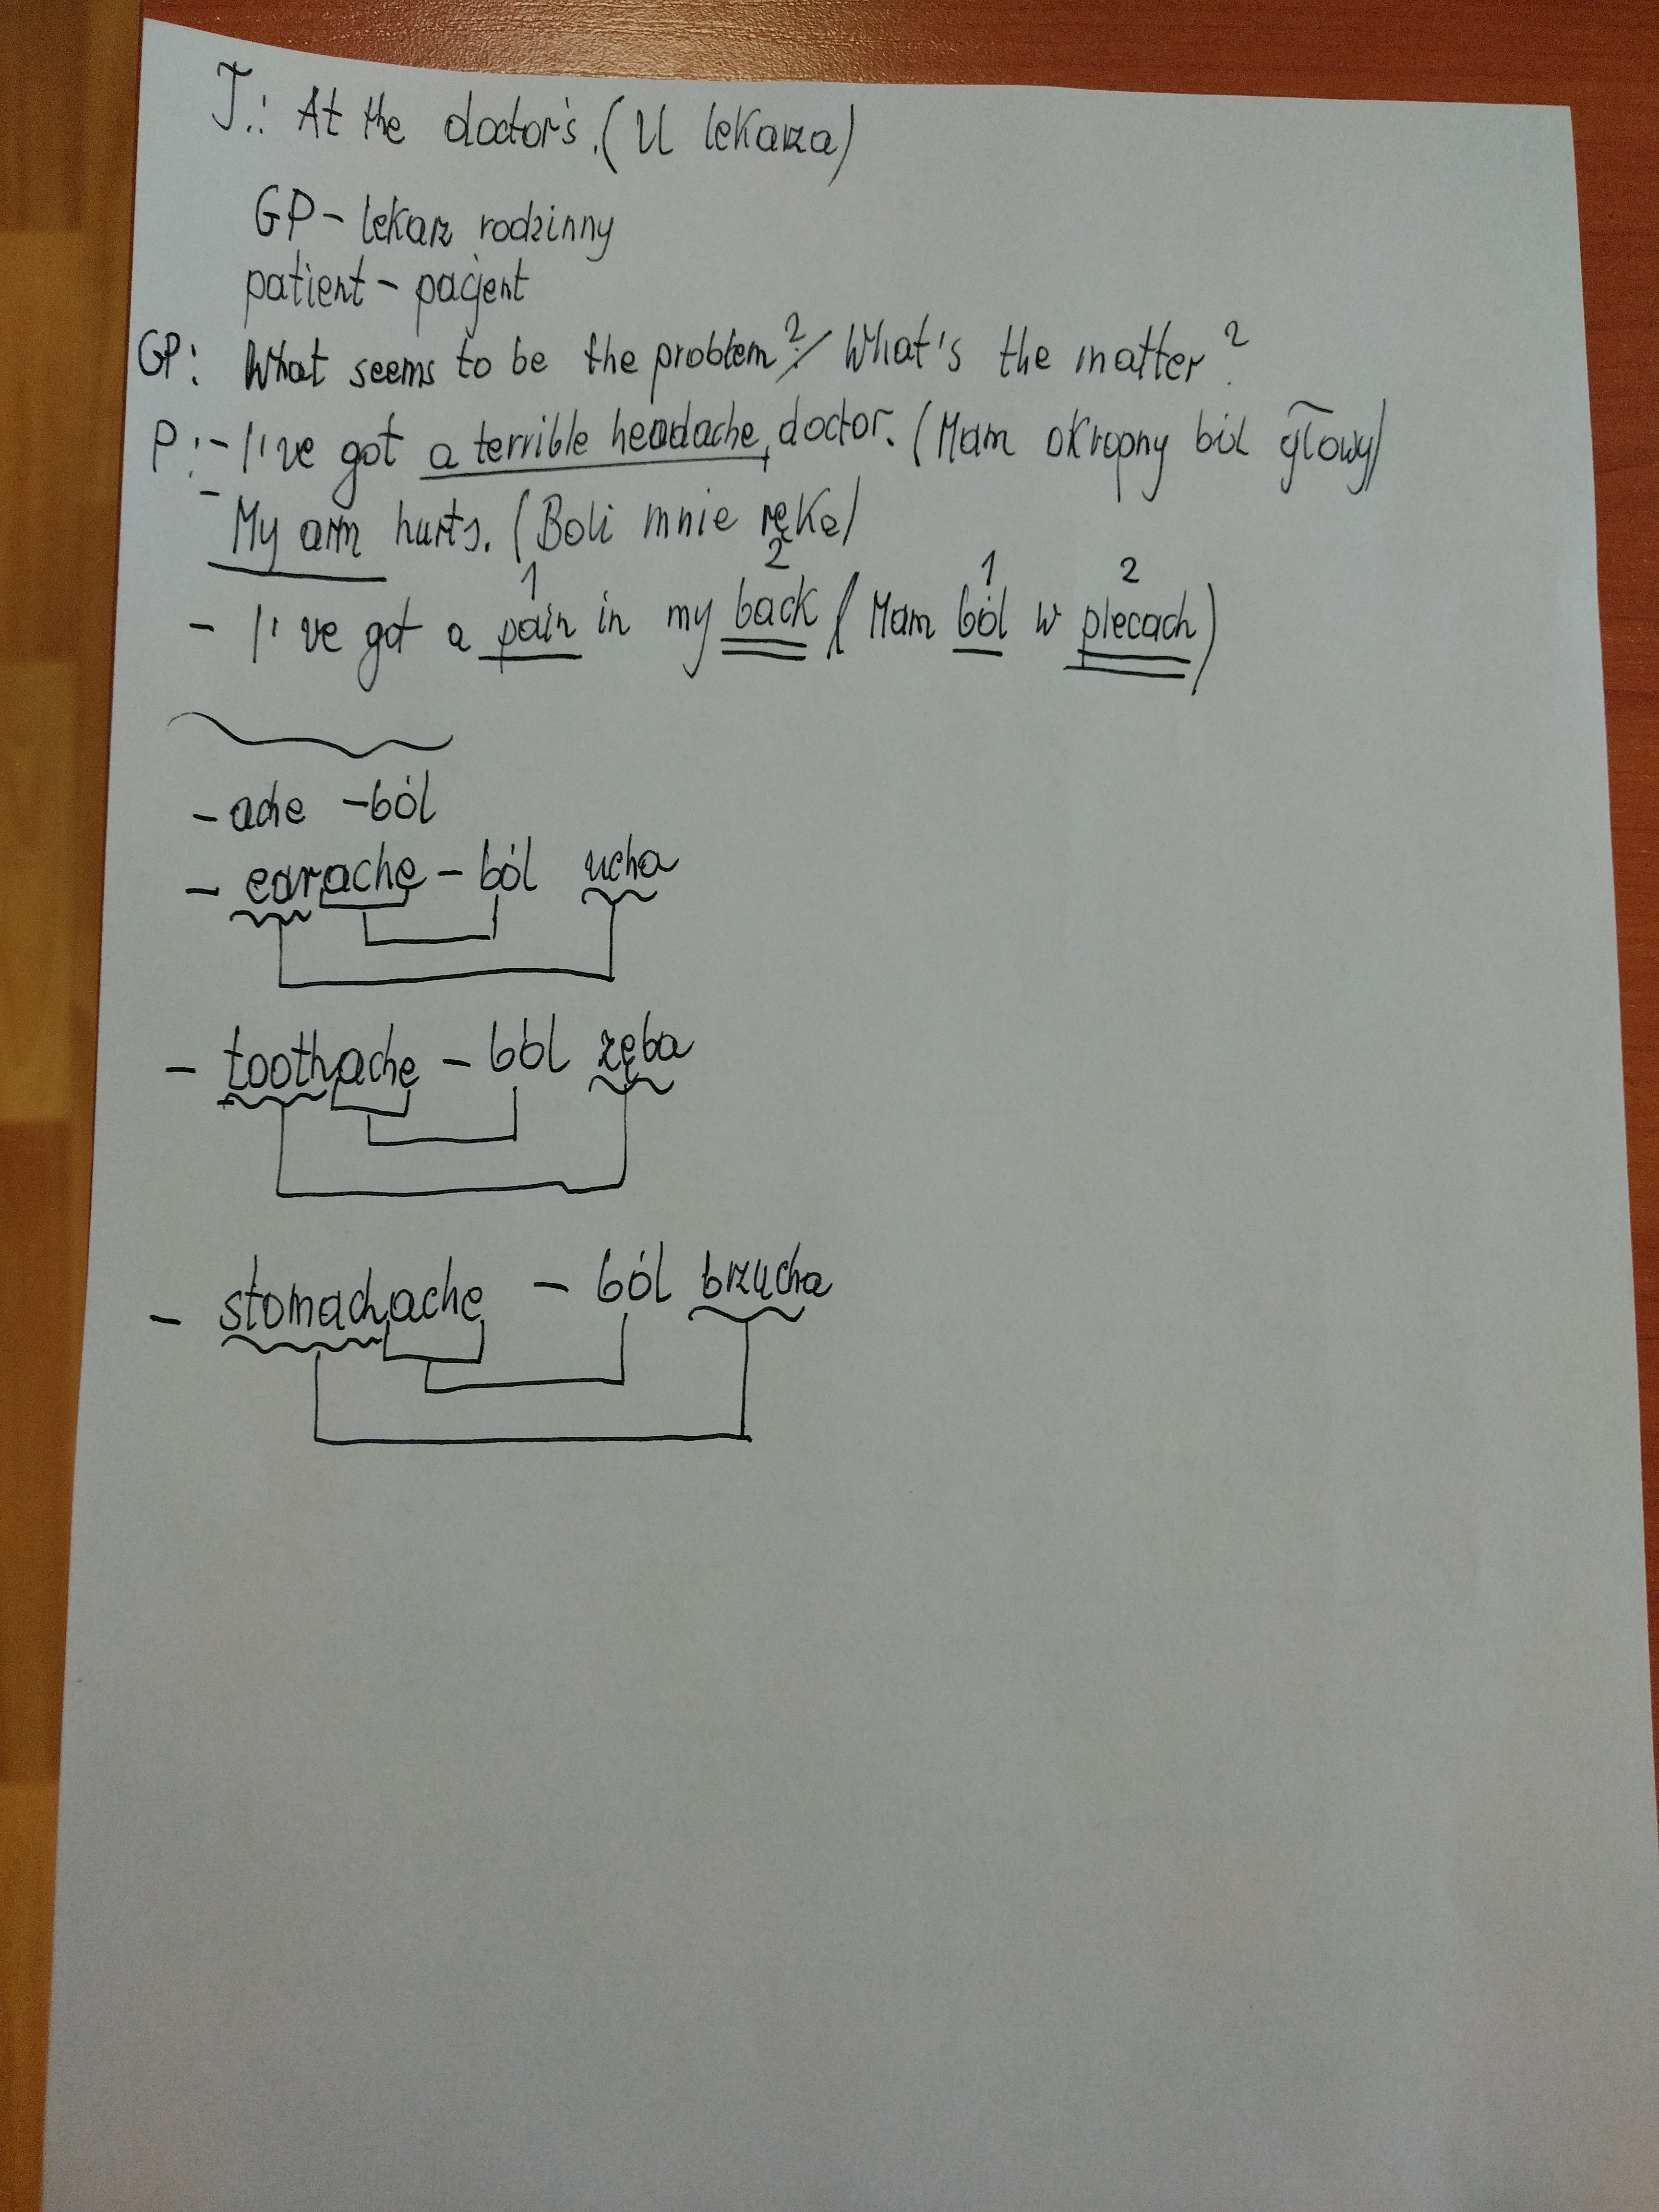 T.: At the doctor's. (U lekarza)
GP - lekarz rodzinny
patient - pacjent
GP: What seems to be the problem? / What's the matter?
P: - I've got a terrible headache, doctor. (Mam okropny ból głowy)
- My arm hurts. (Boli mnie ręka)
1 2 1 2
- I've got a pain in my back (Mam ból w plecach)
- ache - ból
- earache - ból ucha
- toothache - ból zęba
- stomachache - ból brzucha